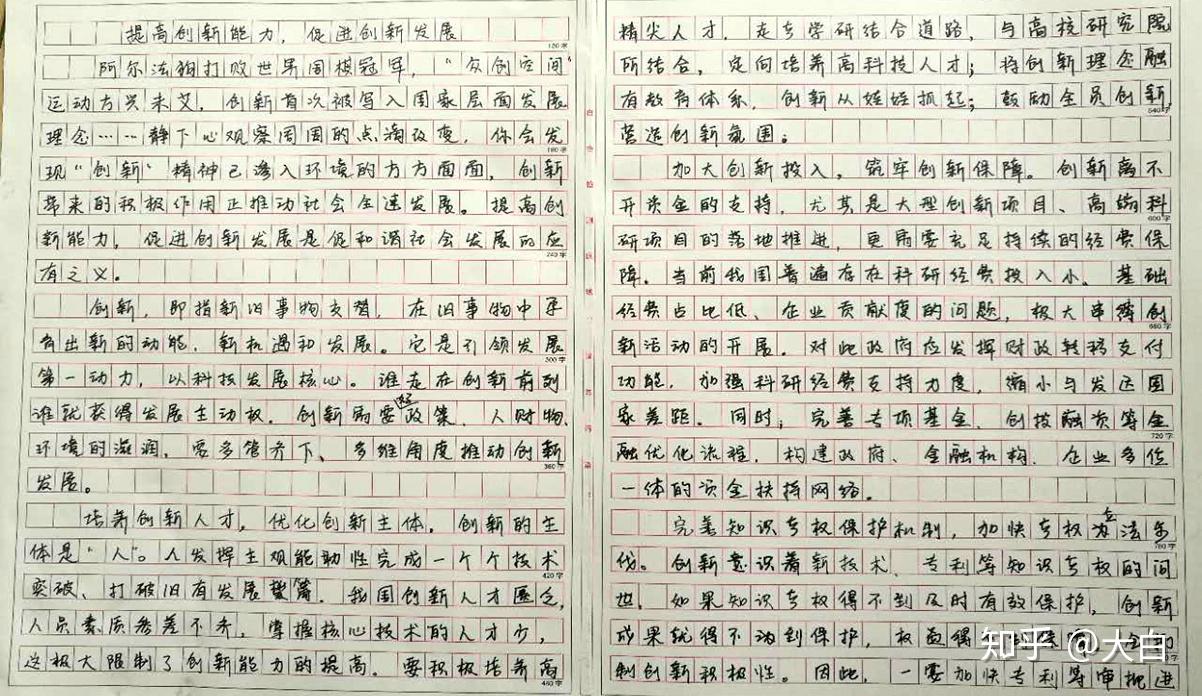 提高创新能力，促进创新发展
120字
阿尔法狗打败世界围棋冠军，“众创空间”
运动方兴未艾，创新首次被写入国家层面发展
理念……静下心观察周围的点滴改变，你会发
180字
现“创新”精神已渗入环境的方方面面，创新
带来的积极作用正推动社会全速发展。提高创
新能力，促进创新发展是促和谐社会发展的应
240字
有之义。
创新，即指新旧事物交替，在旧事物中孕
育出新的动能，新机遇和发展。它是引领发展
300字
第一动力，以科技发展核心。谁走在创新前列
谁就获得发展主动权。创新需要政策、人财物、
环境的滋润，要多管齐下、多维角度推动创新
360字
发展。
培养创新人才，优化创新主体。创新的主
体是“人”。人发挥主观能动性完成一个个技术
420字
突破、打破旧有发展樊篱。我国创新人才匮乏，
人员素质参差不齐，掌握核心技术的人才少，
这极大限制了创新能力的提高。要积极培养高
480字
精尖人才，走专学研结合道路，与高校研究院
所结合，定向培养高科技人才；将创新理念融
有教育体系，创新从娃娃抓起；鼓励全员创新，
540字
营造创新氛围。
加大创新投入，筑牢创新保障。创新离不
开资金的支持，尤其是大型创新项目、高端科
600字
研项目的落地推进，更需要充足持续的经费保
障。当前我国普遍存在科研经费投入小、基础
经费占比低、企业贡献度的问题，极大束缚创
660字
新活动的开展。对此政府应发挥财政转移支付
功能，加强科研经费支持力度，缩小与发达国
家差距。同时，完善专项基金、创投融资等金
720字
融优化流程，构建政府、金融机构、企业多位
一体的资金扶持网络。
完善知识专权保护机制，加快专权立法步
780字
伐。创新意识着新技术、专利等知识专权的问
世，如果知识专权得不到及时有效保护，创新
成果就得不动到保护，权益得
制创新积极性。因此，一要加快专利等审批进
知乎 @大白